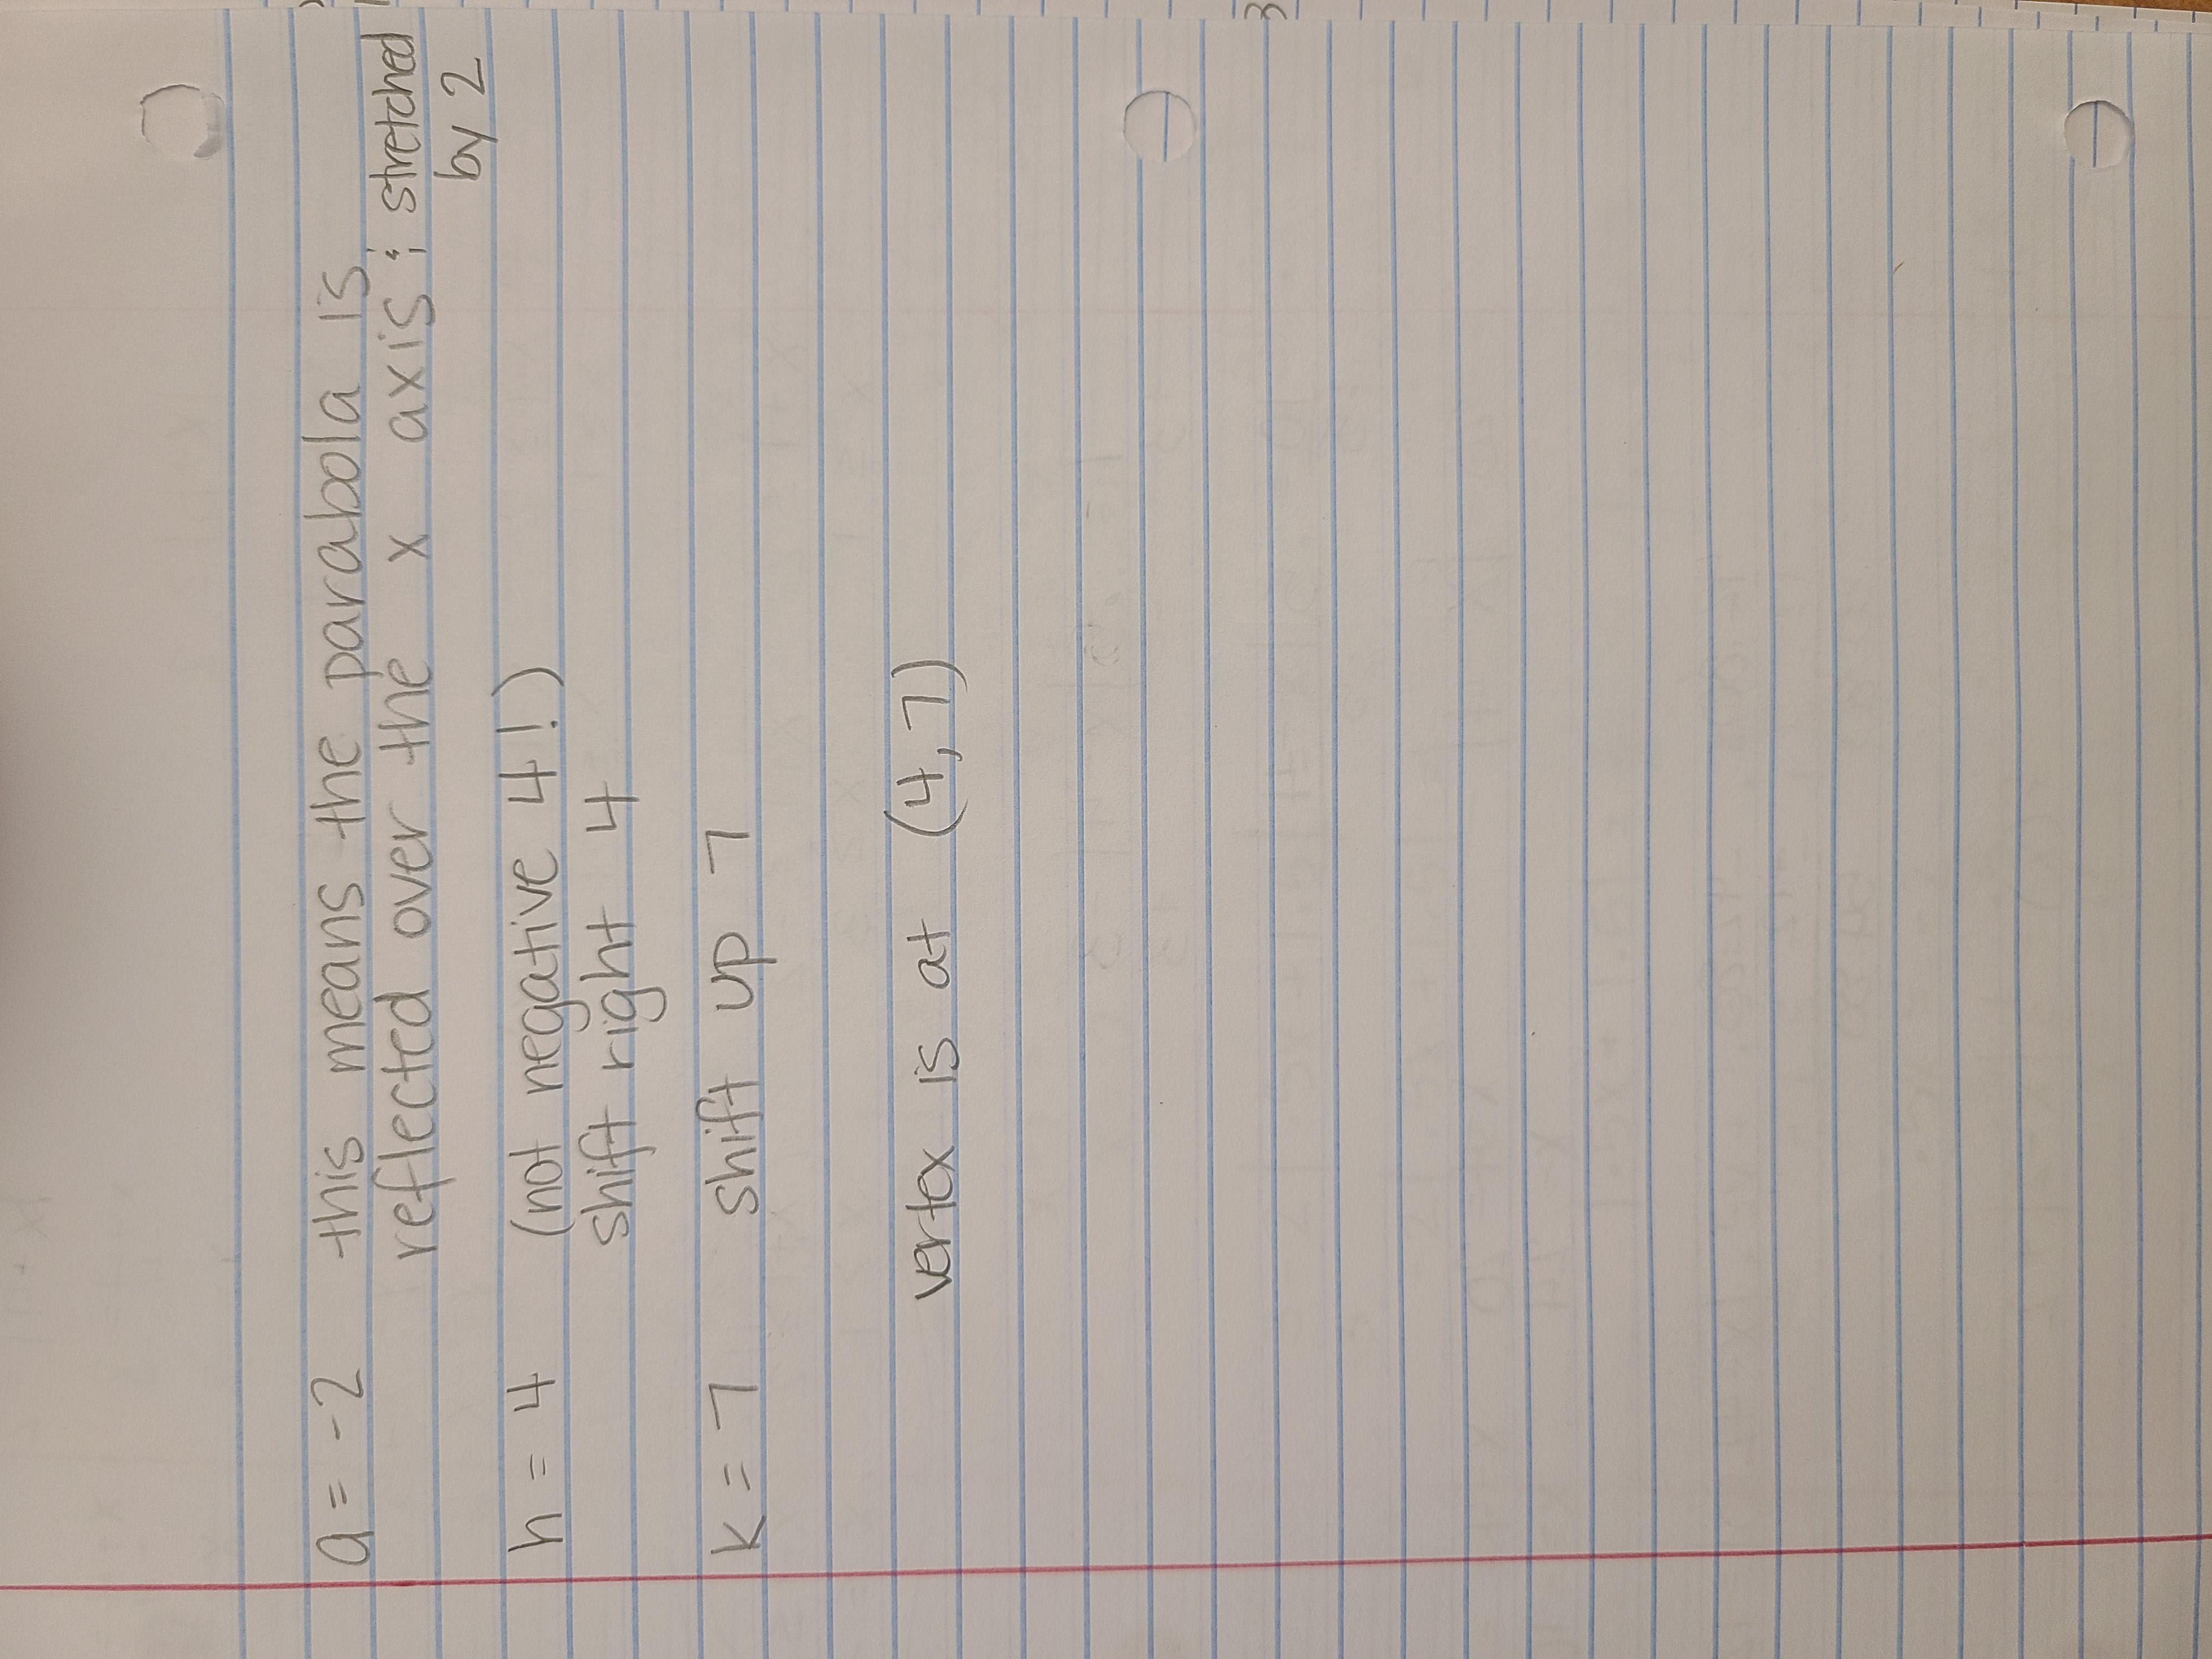 a = -2 this means the parabola is
reflected over the x axis & stretched
by 2
h = 4 (not negative 4!)
shift right 4
k = 7 shift up 7
vertex is at (4,7)